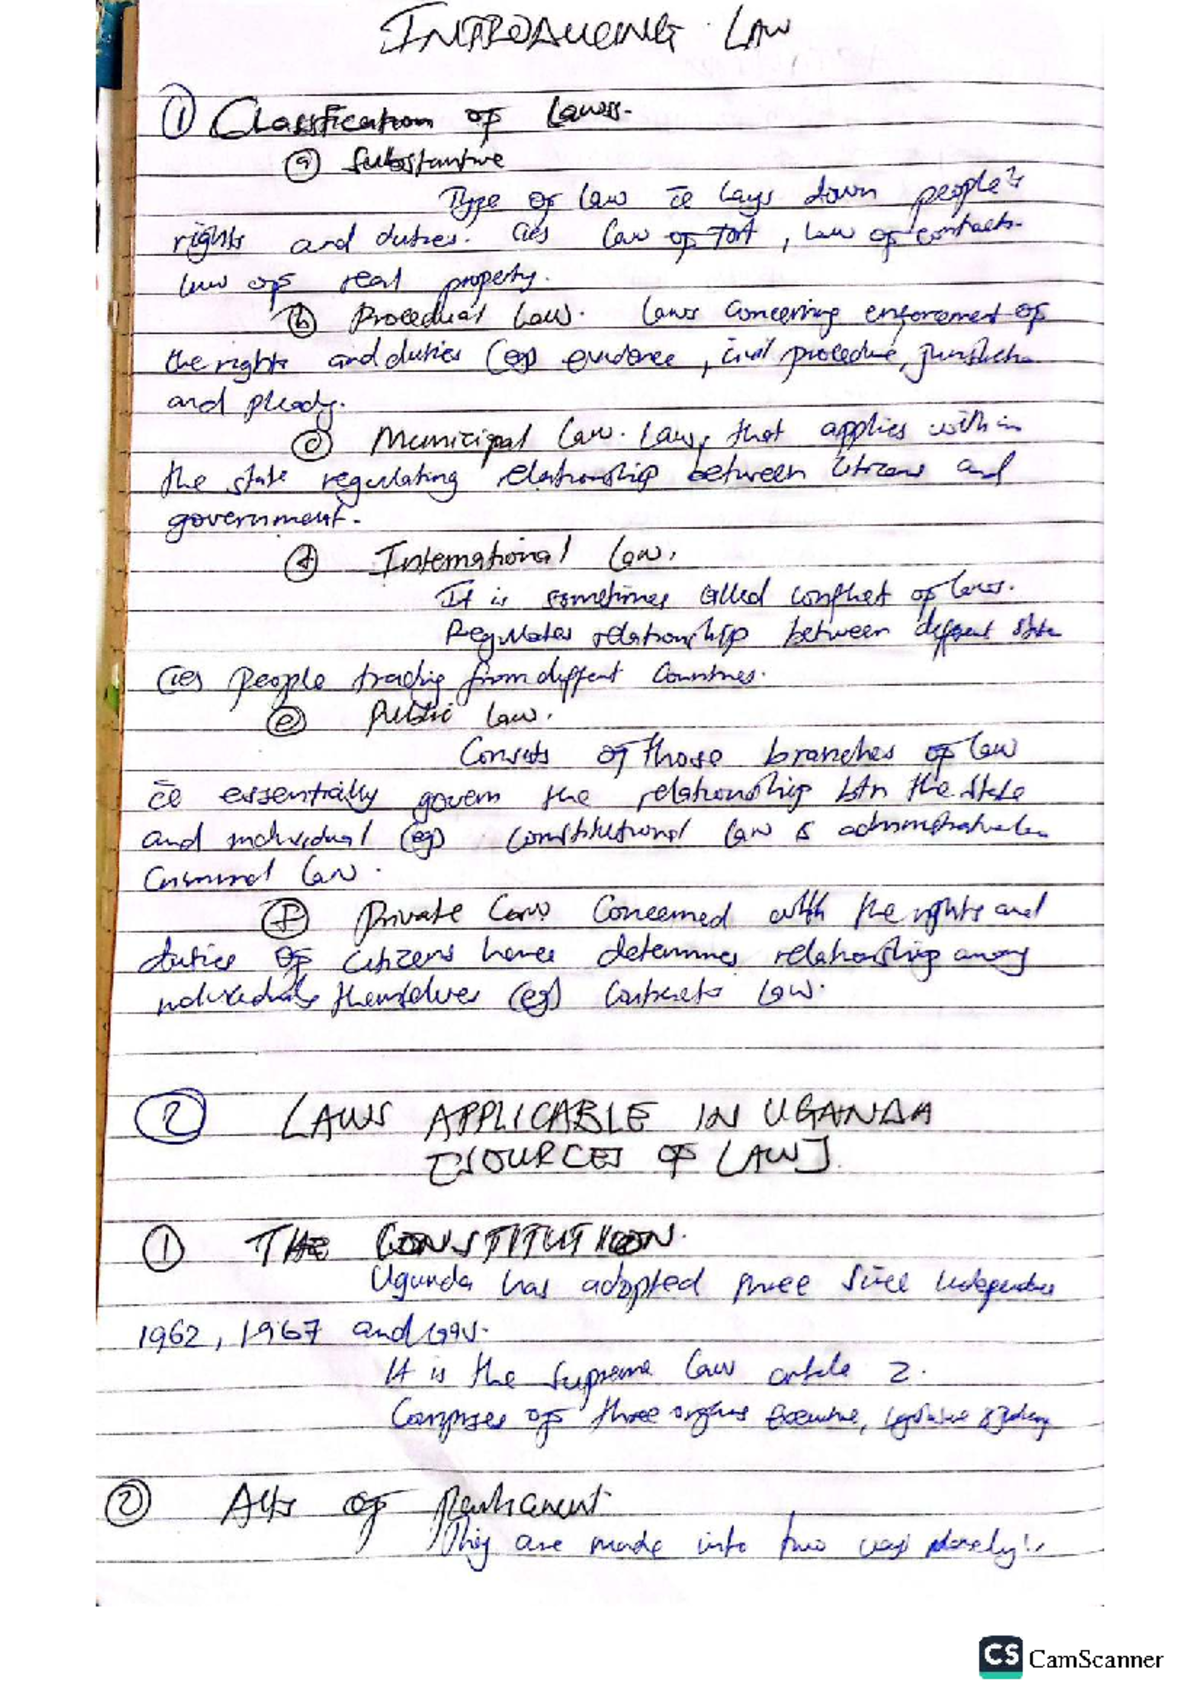 INTRODUCING LAW
① Classification of Laws.
ⓐ Substantive
Type of law ic lays down people's
rights and duties. Law of Tort, law of contracts.
law of real property.
ⓑ Procedural Law. Laws concerning enforcement of
the rights and duties (eg evidence, civil procedure,
and pleadg.
ⓒ Municipal Law. Laws that applies within
the state regulating relationship between citizens and
government.
ⓓ International Law.
It is sometimes called conflict of laws.
Regulates relationship between different state
people tradig from different countries.
ⓔ Public Law.
Consists of those branches of law
ic essentially govern the relationship btn the state
and individual (eg) constitutional law & administrative
Criminal Law.
ⓕ Private Law Concerned with the rights and
duties of citizens hence determines relationship among
individuals themselves (eg) Contracts Law.
② LAWS APPLICABLE IN UGANDA
[SOURCES OF LAW].
① THE CONSTITUTION.
Uganda has adopted three since Independence
1962, 1967 and 1995.
It is the supreme law article 2.
Comprises of three organs Executive, legislative &
② Acts of Parliament
They are made into two ways
CS CamScanner